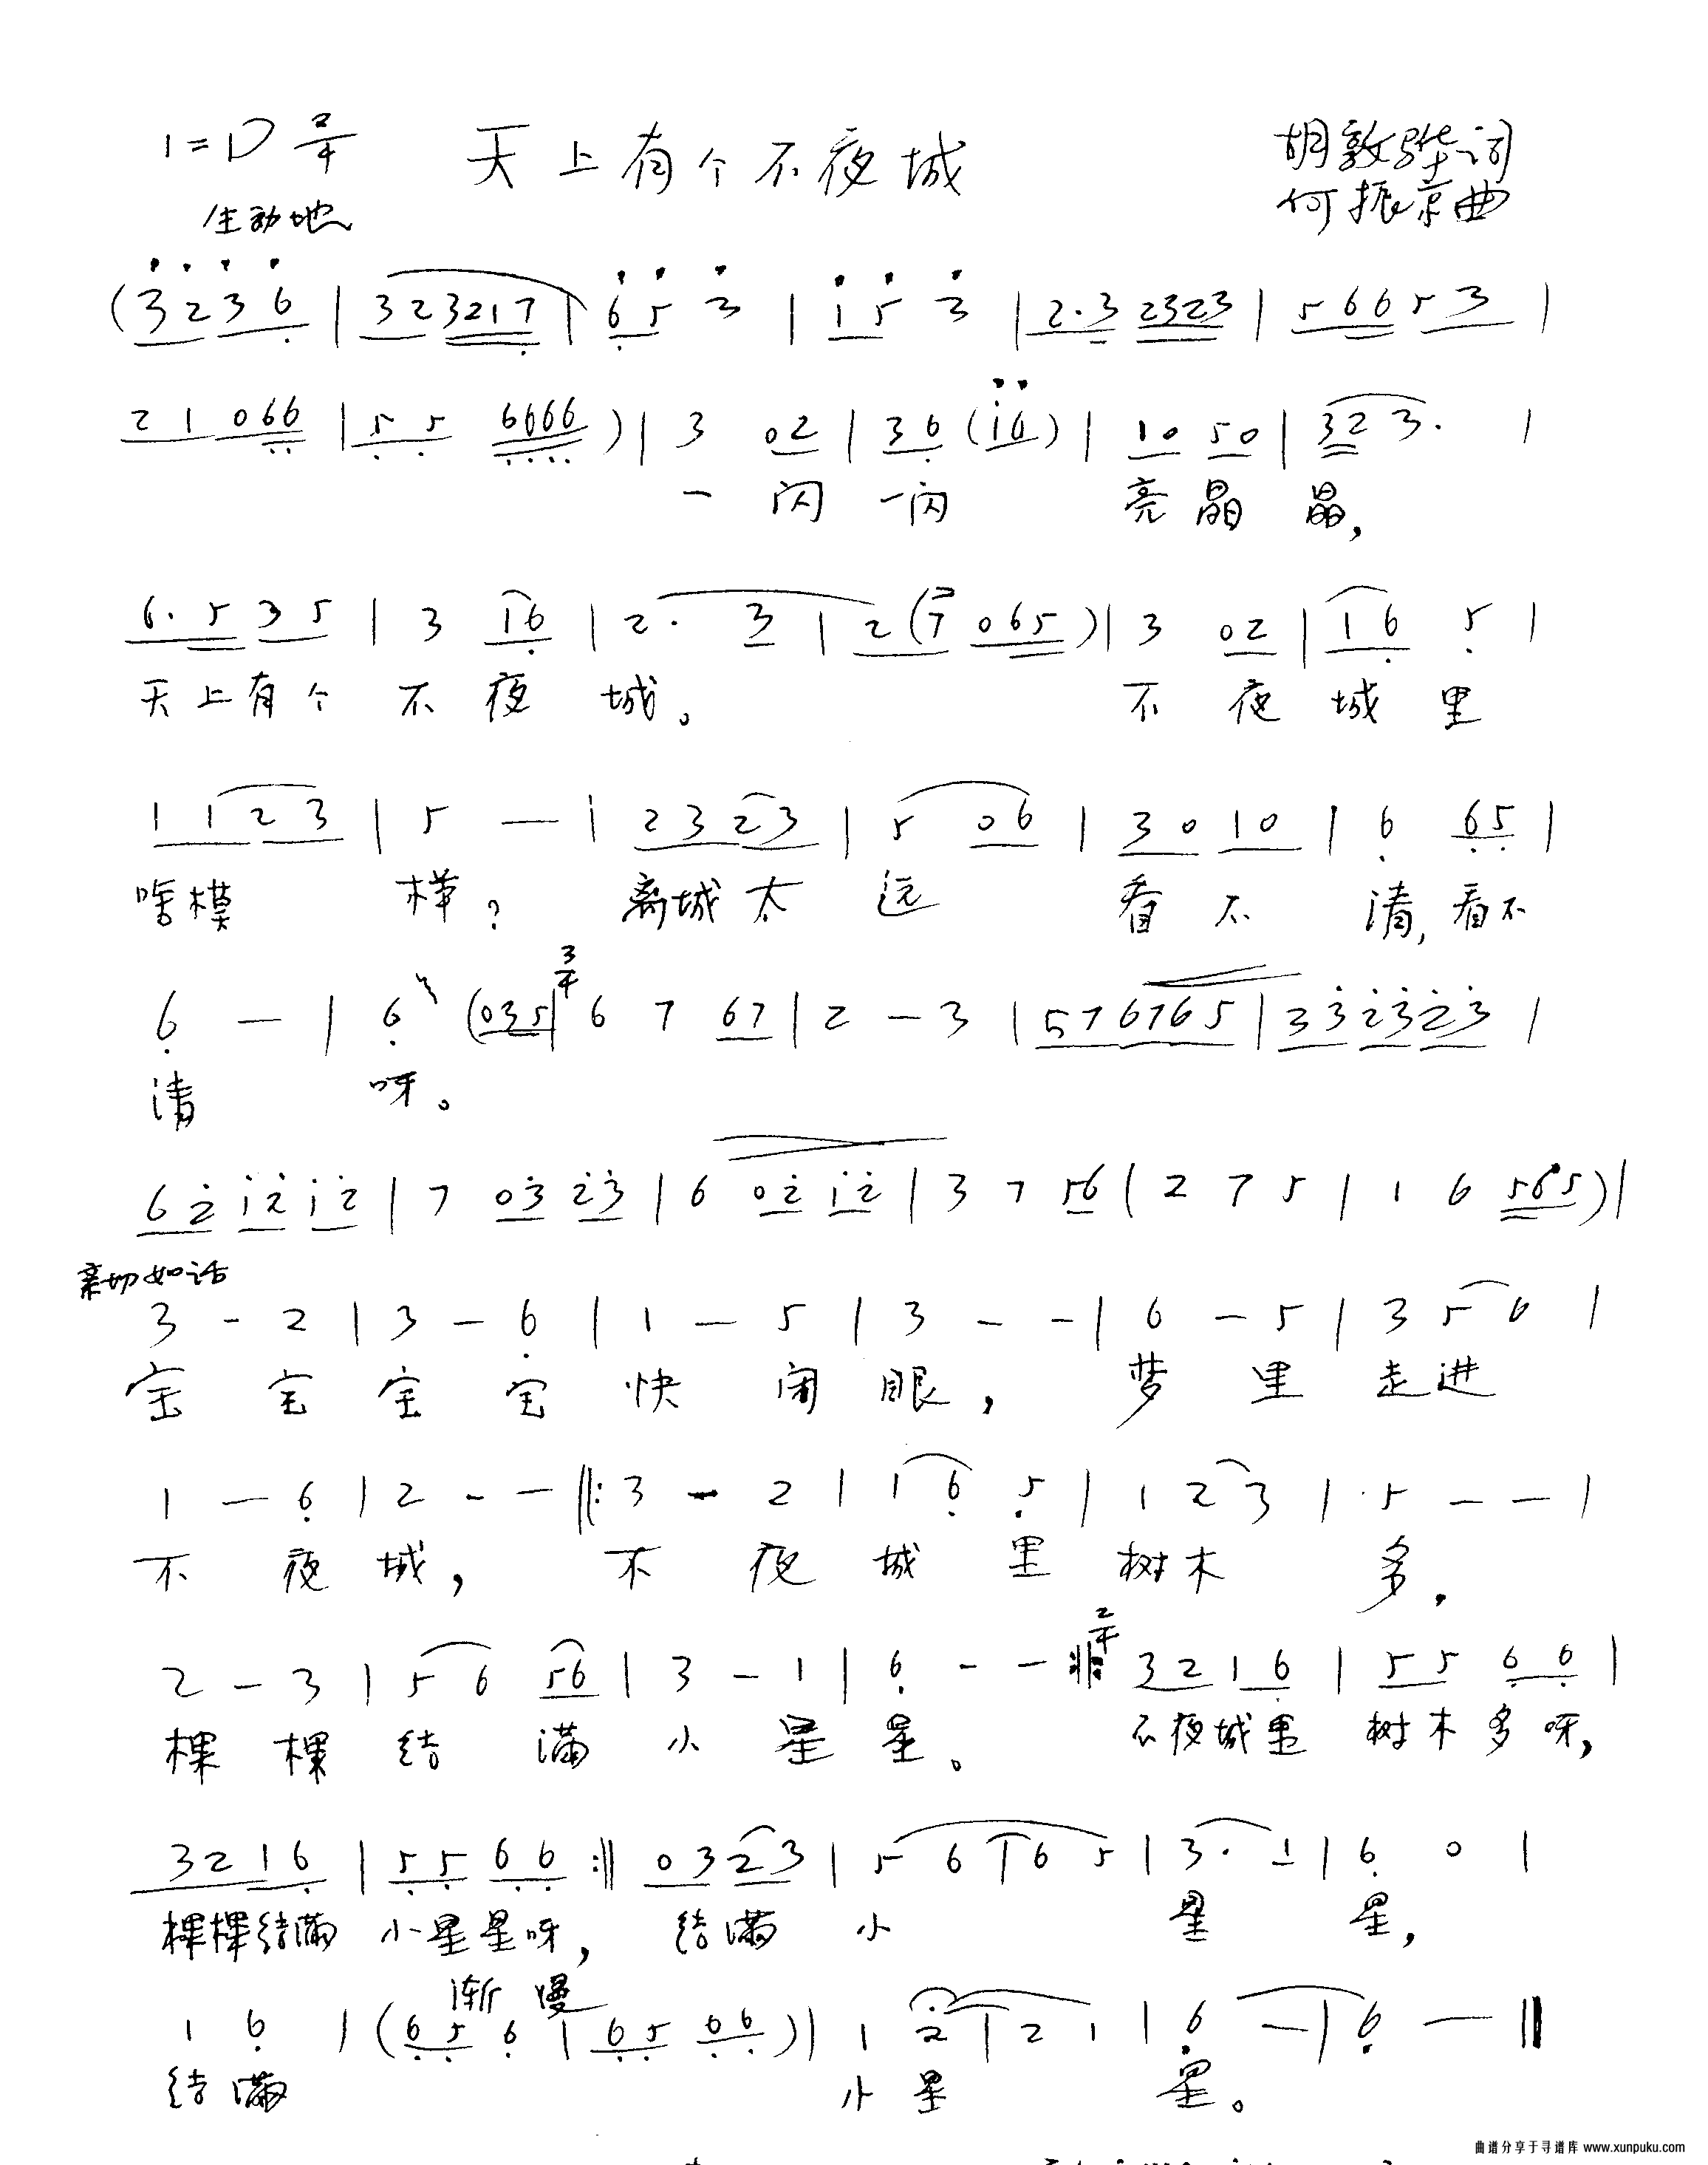 1=D 2/4 天上有个不夜城 胡敦骅词
生动地 何振京曲
(3 2 3 6 | 3 2 3 2 1 7 | 6 5 3 | 1 5 3 | 2·3 2 3 2 3 | 5 6 6 5 3 |
2 1 0 6 6 | 5 5 6 6 6 6 ) | 3 0 2 | 3 6 ( i 6 ) | 1 0 5 0 | 3 2 3· |
一 闪 一 闪 亮 晶 晶,
6·5 3 5 | 3 1 6 | 2· 3 | 2 ( 7 0 6 5 ) | 3 0 2 | 1 6 5 |
天上有个 不 夜 城。 不 夜 城 里
1 1 2 3 | 5 — | 2 3 2 3 | 5 0 6 | 3 0 1 0 | 6 6 5 |
啥模 样? 离城太 远 看 不 清,看不
3/4
6 — | 6 (0 3 5 | 6 7 6 7 | 2 — 3 | 5 7 6 7 6 5 | 3 3 2 3 2 3 |
清 呀。
6 2 i 2 i 2 | 7 0 3 2 3 | 6 0 2 i 2 | 3 7 5 6 ( 2 7 5 | 1 6 5 6 5 ) |
亲切如话
3 - 2 | 3 — 6 | 1 — 5 | 3 - - | 6 — 5 | 3 5 6 |
宝 宝 宝 宝 快 闭 眼, 梦 里 走 进
1 — 6 | 2 - — ‖: 3 - 2 | 1 6 5 | 1 2 3 | 5 — — |
不 夜 城, 不 夜 城 里 树木 多,
2/4
2 — 3 | 5 6 5 6 | 3 - 1 | 6 - — :‖: 3 2 1 6 | 5 5 6 6 |
棵 棵 结 满 小 星 星。 不夜城里 树木多呀,
3 2 1 6 | 5 5 6 6 :‖ 0 3 2 3 | 5 6 | 6 5 | 3· 1 | 6 0 |
棵棵结满 小星星呀, 结满 小 星 星,
渐慢
1 6 | (6 5 6 | 6 5 6 6 ) | 1 2 | 2 1 | 6 — | 6 — ‖
结满 小 星 星。
曲谱分享于寻谱库 www.xunpuku.com